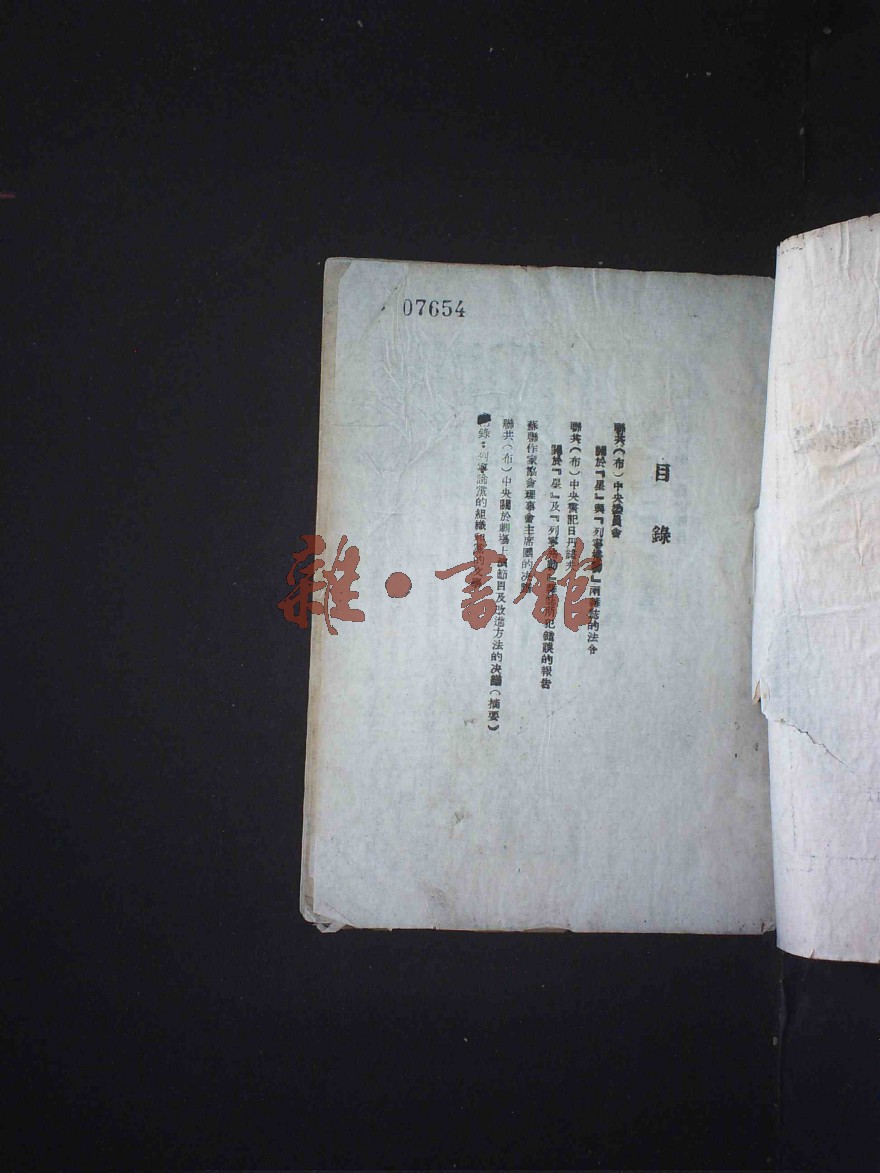 07654
目錄
聯共(布)中央委員會
關於『星』與『列寧 』兩雜誌的法令
聯共(布)中央書記日丹諾夫
關於『星』及『列寧 所犯錯誤的報告
蘇聯作家協會理事會主席團的决議
聯共(布)中央關於劇場上演節目及改進方法的决議(摘要)
錄:列寧論黨的組織和黨的文學
雜·書館